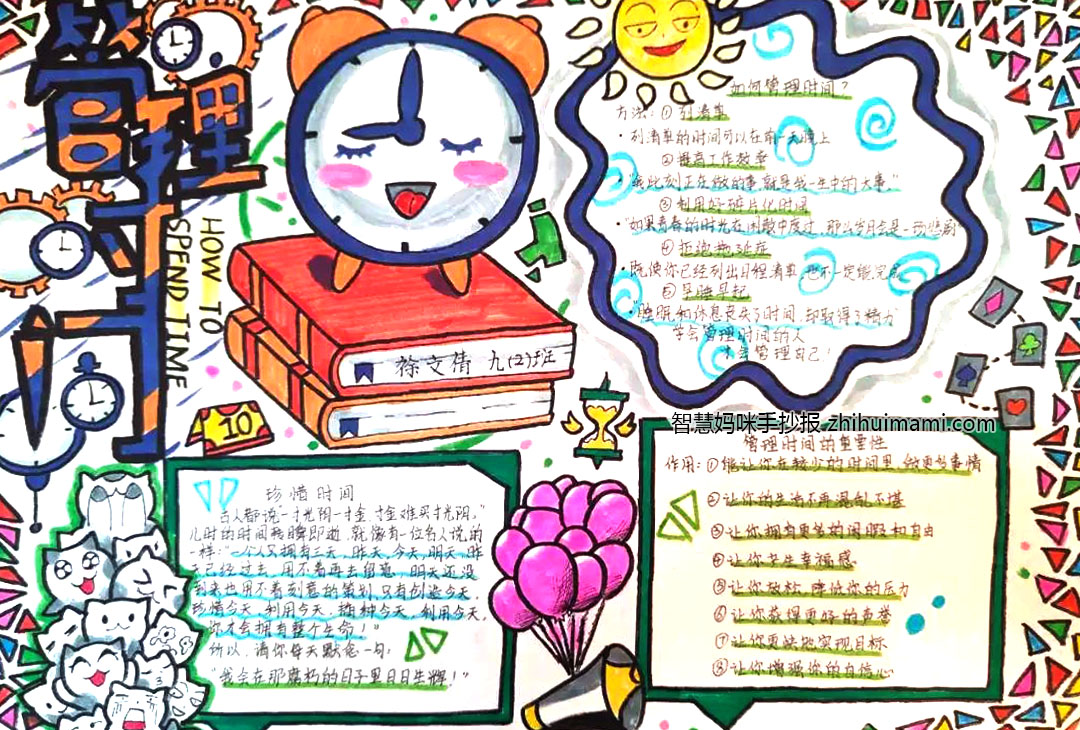 管理时间
HOW TO
SPEND TIME
如何管理时间？
方法：①列清单
·列清单的时间可以在前一天晚上
②提高工作效率
·"我此刻正在做的事，就是我一生中的大事。"
③利用好碎片化时间
·"如果青春的时光在闲散中度过，那么岁月会是一场悲剧
④拒绝拖延症
·既使你已经列出日程清单，也不一定能完成
⑤早睡早起
·"睡眠和休息丧失了时间，却取得了精力
学会管理时间的人
才会管理自己！
徐文倩 九(2)班
10
智慧妈咪手抄报 zhihuimami.com
管理时间的重要性
作用：①能让你在较少的时间里，做更多事情
②让你的生活不再混乱不堪
③让你拥有更多的闲暇和自由
④让你产生幸福感
⑤让你放松，降低你的压力
⑥让你获得更好的声誉
⑦让你更快地实现目标
⑧让你增强你的自信心
珍惜时间
古人都说一寸光阴一寸金，寸金难买寸光阴。"
儿时的时间转瞬即逝，就像有一位名人说的
一样："一个人只拥有三天，昨天，今天，明天，昨
天已经过去，用不着再去留意，明天还没
到来也用不着刻意的策划，只有创造今天，
珍惜今天，利用今天，播种今天，利用今天，
你才会拥有整个生命！"
所以，请你每天默念一句：
"我会在那腐朽的日子里日日生辉！"